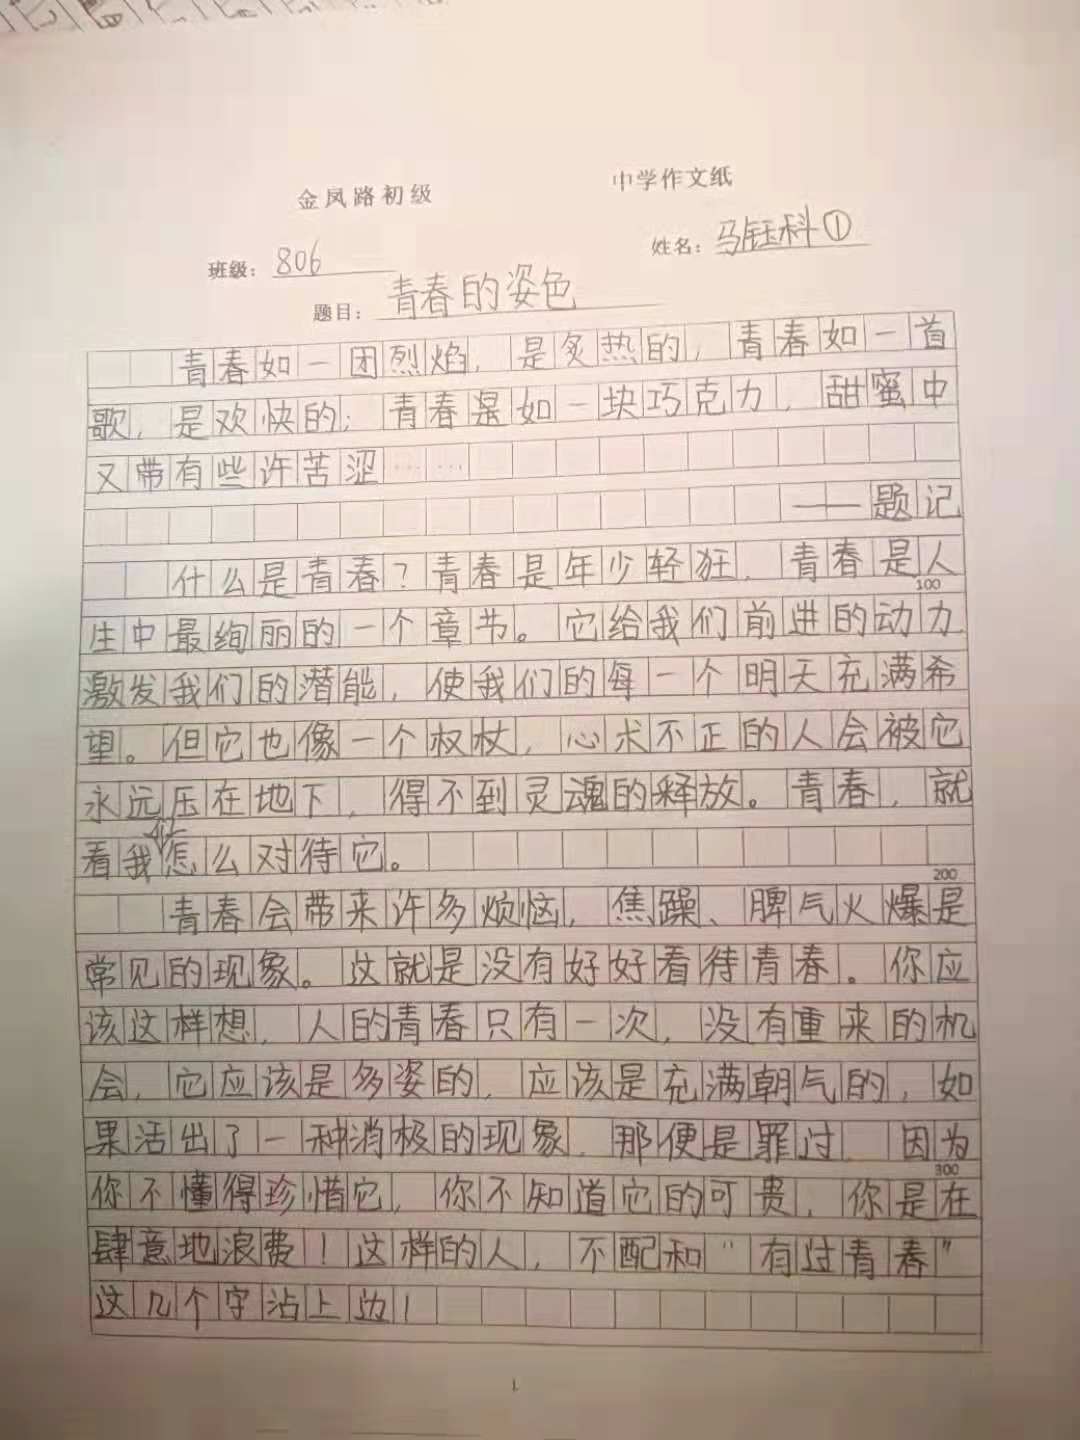 金凤路初级 中学作文纸
班级：806 姓名：马钰科①
题目：青春的姿色
青春如一团烈焰，是炙热的，青春如一首
歌，是欢快的；青春是如一块巧克力，甜蜜中
又带有些许苦涩……
——题记
什么是青春？青春是年少轻狂，青春是人
100
生中最绚丽的一个章节。它给我们前进的动力
激发我们的潜能，使我们的每一个明天充满希
望。但它也像一个权杖，心术不正的人会被它
永远压在地下，得不到灵魂的释放。青春，就
看我你怎么对待它。
200
青春会带来许多烦恼，焦躁、脾气火爆是
常见的现象。这就是没有好好看待青春。你应
该这样想，人的青春只有一次，没有重来的机
会，它应该是多姿的，应该是充满朝气的，如
果活出了一种消极的现象，那便是罪过，因为
300
你不懂得珍惜它，你不知道它的可贵，你是在
肆意地浪费！这样的人，不配和“有过青春”
这几个字沾上边！
1